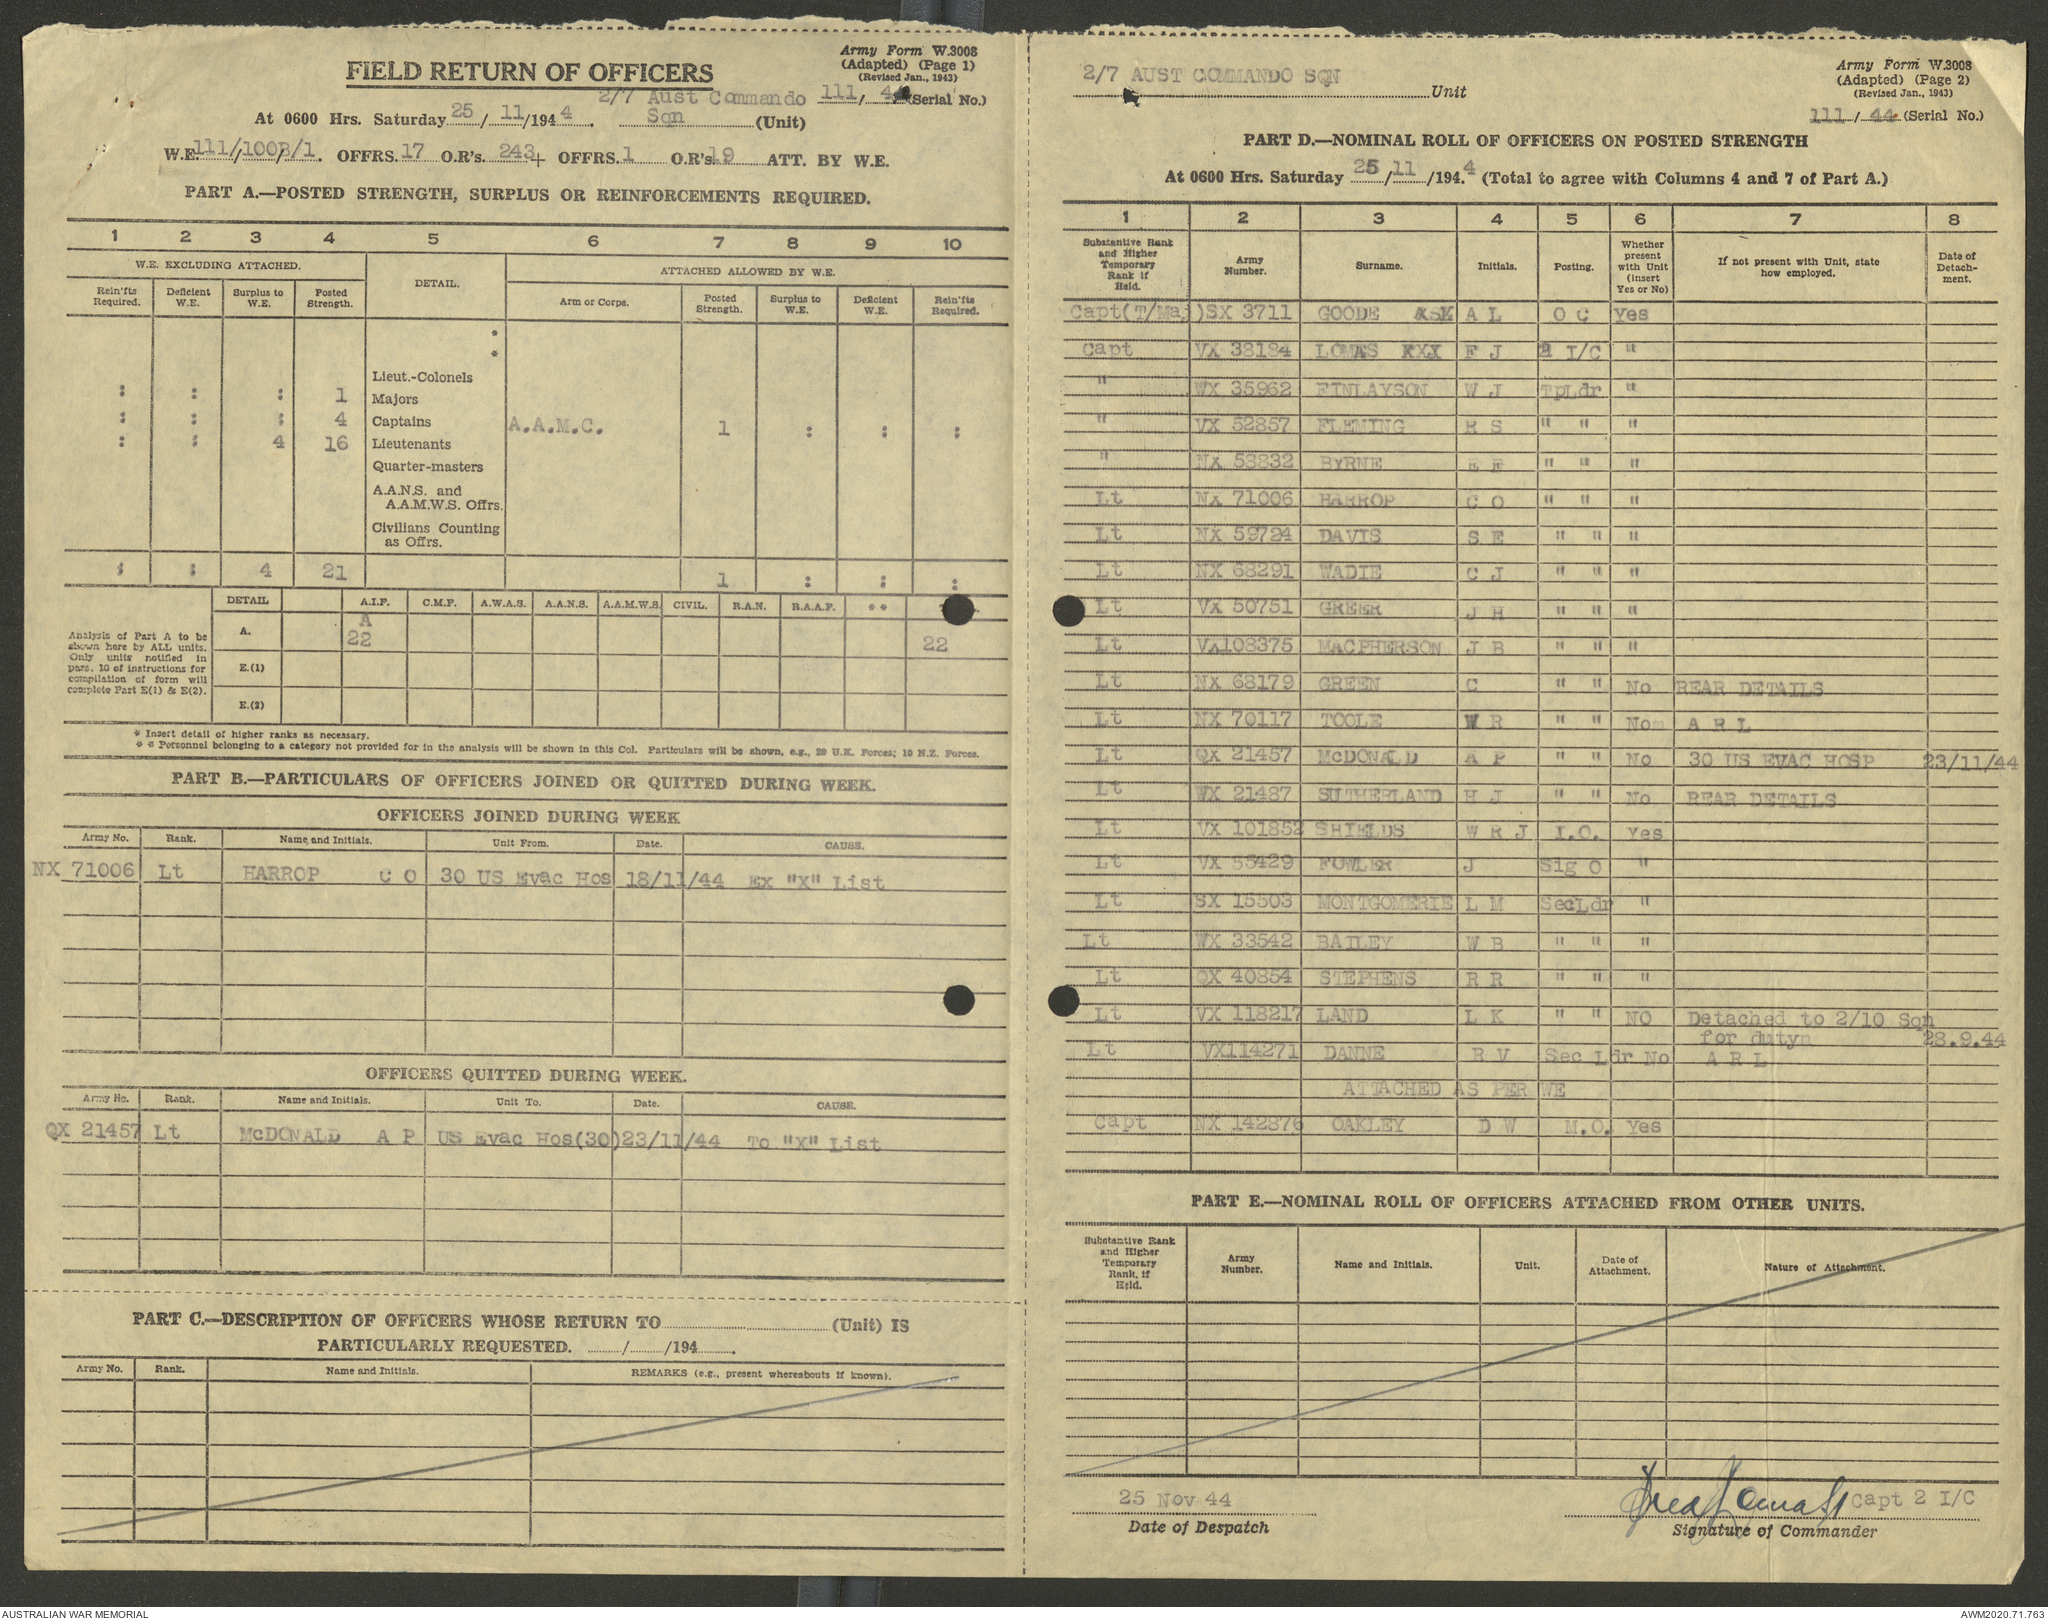 Army Form W.3008
(Adapted) (Page 1)
(Revised Jan., 1943)
FIELD RETURN OF OFFICERS
2/7 Aust Commando 111/44 (Serial No.)
At 0600 Hrs. Saturday 25/11/1944. Sqn (Unit)
W.E. 111/100B/1. OFFRS. 17 O.R's. 243+ OFFRS. 1 O.R's 19 ATT. BY W.E.
PART A.—POSTED STRENGTH, SURPLUS OR REINFORCEMENTS REQUIRED.
1 2 3 4 5 6 7 8 9 10
W.E. EXCLUDING ATTACHED. DETAIL. ATTACHED ALLOWED BY W.E.
Rein'fts Required. Deficient W.E. Surplus to W.E. Posted Strength. Arm or Corps. Posted Strength. Surplus to W.E. Deficient W.E. Rein'fts Required.
*
*
Lieut.-Colonels
: : : 1 Majors
: : : 4 Captains A.A.M.C. 1 : : :
: : 4 16 Lieutenants
Quarter-masters
A.A.N.S. and
A.A.M.W.S. Offrs.
Civilians Counting
as Offrs.
: : 4 21 1 : : :
DETAIL A.I.F. C.M.F. A.W.A.S. A.A.N.S. A.A.M.W.S. CIVIL. R.A.N. R.A.A.F. **
Analysis of Part A to be
shown here by ALL units.
Only units notified in
para. 10 of instructions for
compilation of form will
complete Part E(1) & E(2).
A. A 22 22
E.(1)
E.(2)
* Insert detail of higher ranks as necessary.
* * Personnel belonging to a category not provided for in the analysis will be shown in this Col. Particulars will be shown, e.g., 29 U.K. Forces; 10 N.Z. Forces.
PART B.—PARTICULARS OF OFFICERS JOINED OR QUITTED DURING WEEK.
OFFICERS JOINED DURING WEEK
Army No. Rank. Name and Initials. Unit From. Date. CAUSE.
NX 71006 Lt HARROP C O 30 US Evac Hos 18/11/44 Ex "X" List
OFFICERS QUITTED DURING WEEK.
Army No. Rank. Name and Initials. Unit To. Date. CAUSE.
QX 21457 Lt McDONALD A P US Evac Hos(30) 23/11/44 To "X" List
PART C.—DESCRIPTION OF OFFICERS WHOSE RETURN TO (Unit) IS
PARTICULARLY REQUESTED. / /194 .
Army No. Rank. Name and Initials. REMARKS (e.g., present whereabouts if known).
Army Form W.3008
(Adapted) (Page 2)
(Revised Jan., 1943)
2/7 AUST COMMANDO SQN Unit
111/44 (Serial No.)
PART D.—NOMINAL ROLL OF OFFICERS ON POSTED STRENGTH
At 0600 Hrs. Saturday 25/11/1944 (Total to agree with Columns 4 and 7 of Part A.)
1 2 3 4 5 6 7 8
Substantive Rank and Higher Temporary Rank if Held. Army Number. Surname. Initials. Posting. Whether present with Unit (insert Yes or No) If not present with Unit, state how employed. Date of Detach-ment.
Capt(T/Maj) SX 3711 GOODE A L O C Yes
Capt VX 38184 LOMAS F J 2 I/C "
" WX 35962 FINLAYSON W J TpLdr "
" VX 52857 FLEMING R S " " "
" NX 58832 BYRNE E F " " "
Lt NX 71006 HARROP C O " " "
Lt NX 59724 DAVIS S E " " "
Lt NX 68291 WADIE C J " " "
Lt VX 50751 GREER J H " " "
Lt VX108375 MACPHERSON J B " " "
Lt NX 68179 GREEN C " " No REAR DETAILS
Lt NX 70117 TOOLE W R " " Nom A R L
Lt QX 21457 McDONALD A P " " No 30 US EVAC HOSP 23/11/44
Lt WX 21487 SUTHERLAND H J " " No REAR DETAILS
Lt VX 101852 SHIELDS W R J I.O. Yes
Lt VX 55429 FOWLER J Sig O "
Lt SX 15503 MONTGOMERIE L M SecLdr "
Lt WX 33542 BAILEY W B " " "
Lt QX 40854 STEPHENS R R " " "
Lt VX 118217 LAND L K " " NO Detached to 2/10 Sqn
for dutyn 28.9.44
Lt VX114271 DANNE R V Sec Ldr No A R L
ATTACHED AS PER WE
Capt NX 142876 OAKLEY D W M.O. Yes
PART E.—NOMINAL ROLL OF OFFICERS ATTACHED FROM OTHER UNITS.
Substantive Rank and Higher Temporary Rank, if Held. Army Number. Name and Initials. Unit. Date of Attachment. Nature of Attachment.
25 Nov 44 Capt 2 I/C
Date of Despatch Signature of Commander
AUSTRALIAN WAR MEMORIAL AWM2020.71.763